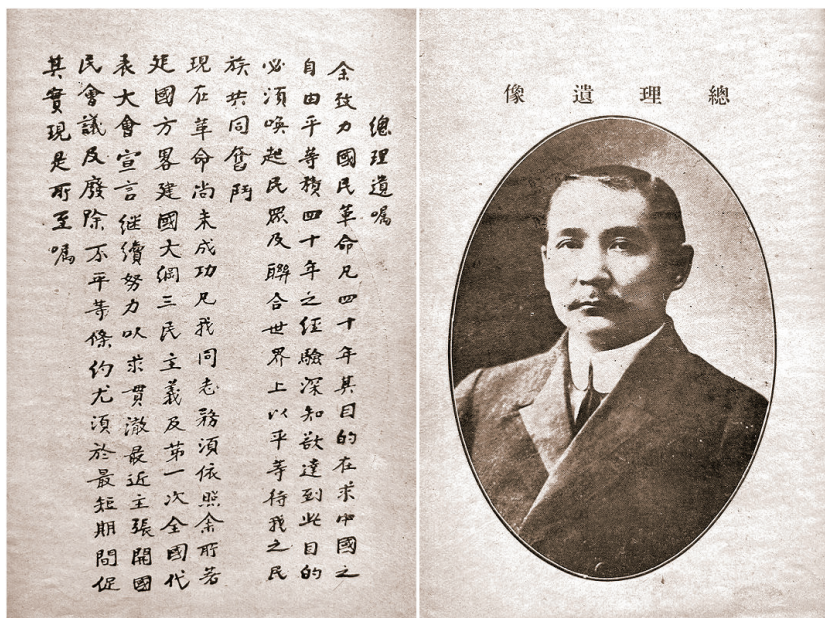 總理遺像
總理遺囑
余致力國民革命凡四十年其目的在求中國之
自由平等積四十年之經驗深知欲達到此目的
必須喚起民眾及聯合世界上以平等待我之民
族共同奮鬥
現在革命尚未成功凡我同志務須依照余所著
建國方畧建國大綱三民主義及第一次全國代
表大會宣言繼續努力以求貫澈最近主張開國
民會議及廢除不平等條約尤須於最短期間促
其實現是所至囑